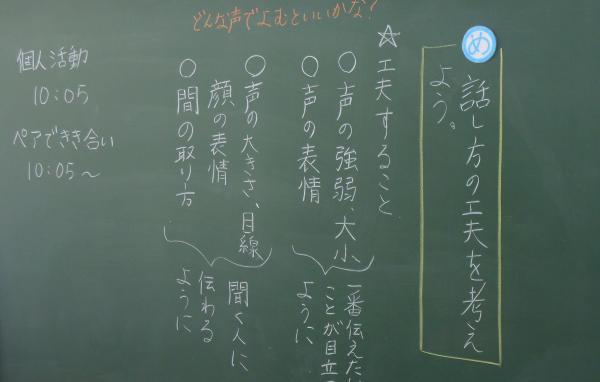 どんな声でよむといいかな?
め
話し方の工夫を考え
よう。
☆工夫すること
○声の強弱、大小
○声の表情
一番伝えたい
ことが目立
ように
○声の大きさ、目線
顔の表情
○間の取り方
聞く人に
伝わる
ように
個人活動
10:05
ペアできき合い
10:05~